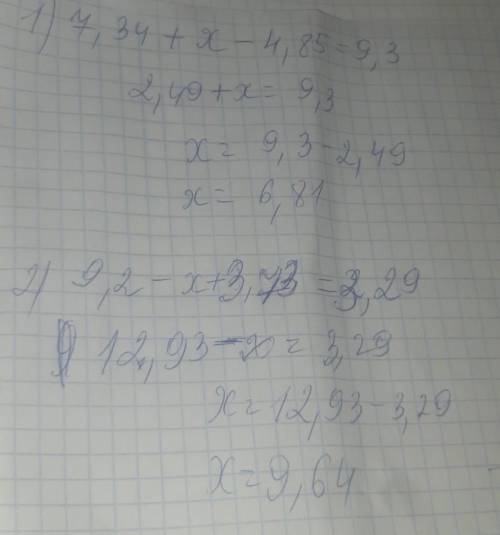 1) 7,34 + x - 4,85 = 9,3
2,49 + x = 9,3
x = 9,3 - 2,49
x = 6,81
2) 9,2 - x + 3,73 = 3,29
12,93 - x = 3,29
x = 12,93 - 3,29
x = 9,64